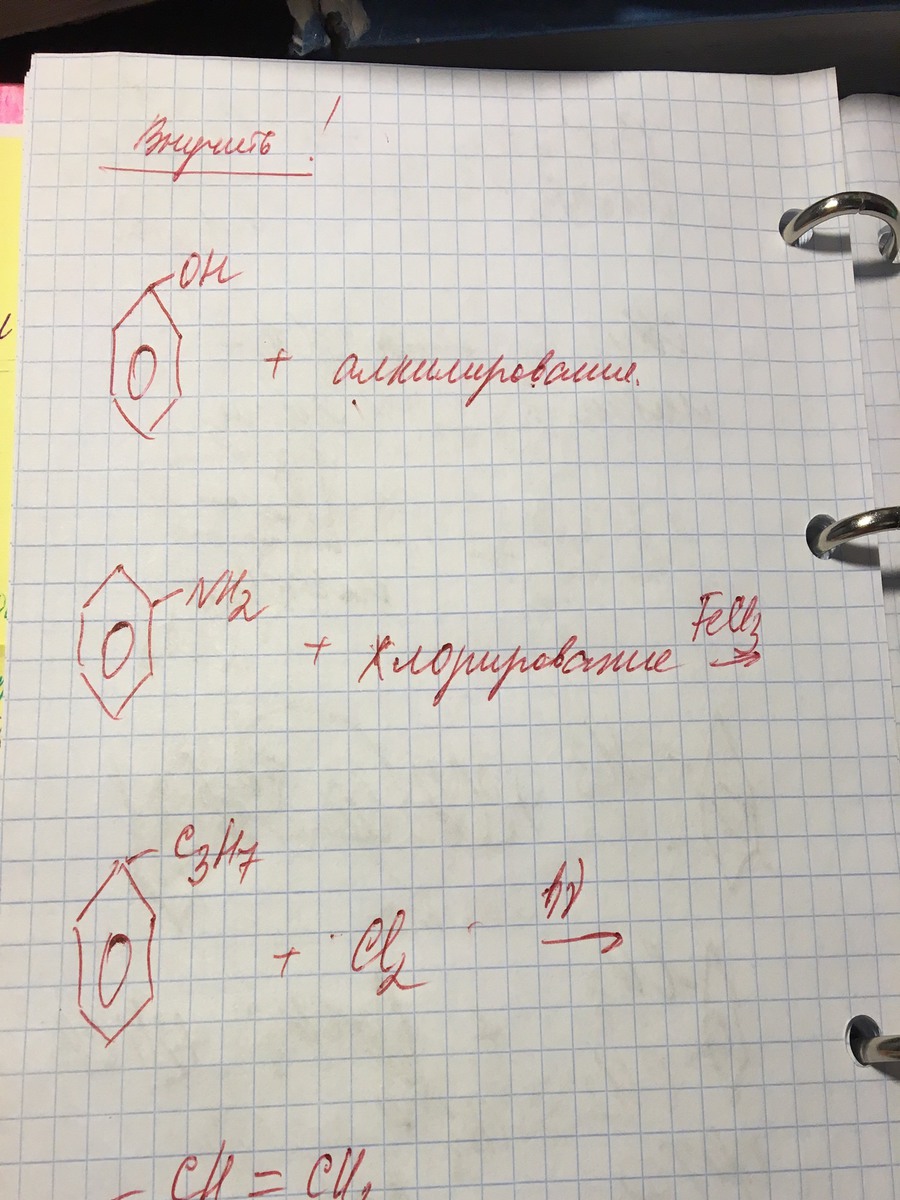 Выучить!
OH
+ алкилирование.
NH2
+ хлорирование FeCl3 →
C3H7
+ Cl2 hν →
– CH = CH2